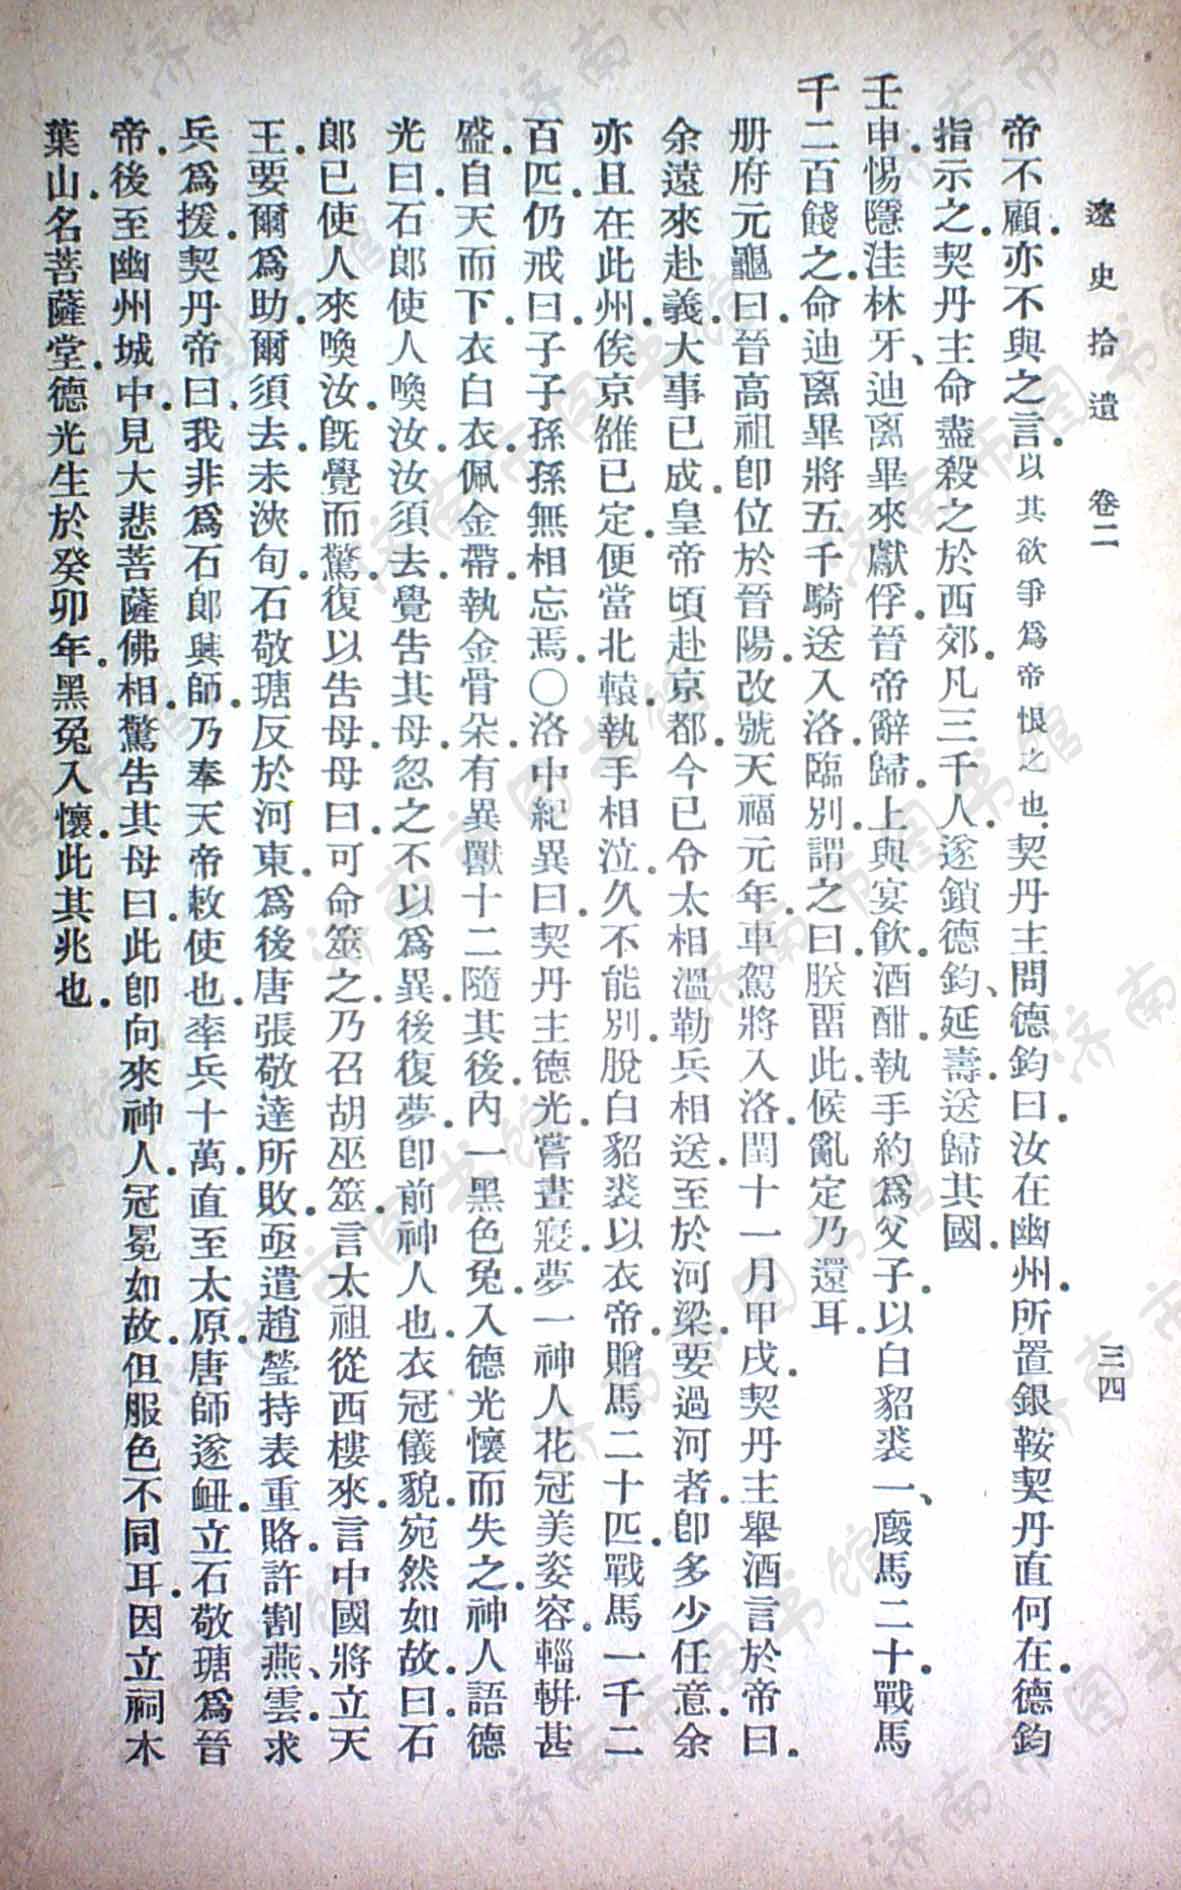 遼史拾遺 卷二 三四
帝不顧.亦不與之言.以其欲爭爲帝恨之也.契丹主問德鈞曰.汝在幽州.所置銀鞍契丹直何在.德鈞
指示之.契丹主命盡殺之於西郊.凡三千人.遂鎖德鈞、延壽.送歸其國.
壬申.惕隱洼林牙、迪离畢來獻俘.晉帝辭歸.上與宴飮.酒酣.執手約爲父子.以白貂裘一、廏馬二十.戰馬
千二百餞之.命迪离畢將五千騎送入洛.臨別.謂之曰.朕留此.候亂定乃還耳.
册府元龜曰.晉高祖卽位於晉陽.改號天福元年.車駕將入洛.閏十一月甲戌.契丹主舉酒言於帝曰.
余遠來赴義.大事已成.皇帝頃赴京都.今已令太相溫勒兵相送.至於河梁.要過河者.卽多少任意.余
亦且在此州.俟京雒已定.便當北轅.執手相泣.久不能別.脫白貂裘以衣帝.贈馬二十匹.戰馬一千二
百匹.仍戒曰.子子孫孫無相忘焉.○洛中紀異曰.契丹主德光嘗晝寢.夢一神人花冠美姿容.輜軿甚
盛.自天而下.衣白衣.佩金帶.執金骨朵.有異獸十二隨其後.內一黑色兔.入德光懷而失之.神人語德
光曰.石郎使人喚汝.汝須去.覺告其母.忽之不以爲異.後復夢.卽前神人也.衣冠儀貌.宛然如故.曰.石
郎已使人來喚汝.旣覺而驚.復以告母.母曰.可命筮之.乃召胡巫筮.言太祖從西樓來.言中國將立天
王.要爾爲助.爾須去.未浹旬.石敬瑭反於河東.爲後唐張敬達所敗.亟遣趙瑩持表重賂.許割燕、雲.求
兵爲援.契丹帝曰.我非爲石郎興師.乃奉天帝敕使也.率兵十萬.直至太原.唐師遂衄.立石敬瑭爲晉
帝.後至幽州城中.見大悲菩薩佛相.驚告其母曰.此卽向來神人.冠冕如故.但服色不同耳.因立祠木
葉山.名菩薩堂.德光生於癸卯年.黑兔入懷.此其兆也.